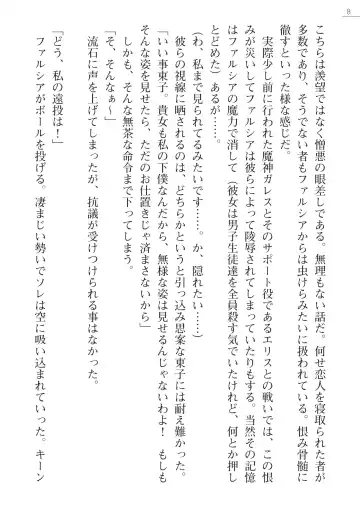 8
こちらは羨望ではなく憎悪の眼差しである。何せ恋人を寝取られた者が
多数であり、そうでない者もファルシアからは虫けらみたいに扱われている。恨み骨髄に
徹すといった様な感じだ。無理もない話だ。
実際少し前に行われた魔神ガレスとそのサポート役であるエリスとの戦いでは、この恨
みが災いしてファルシアは彼らによって陵辱されてしまっていたりもする。当然その記憶
はファルシアの魔力で消して(彼女は男子生徒達を全員殺す気でいたけれど、何とか押し
とどめた)あるが……。
(わ、私まで見られてるみたいです……。か、隠れたい……)
彼らの視線に晒されるのは、どちらかというと引っ込み思案な東子には耐え難かった。
「いい事東子。貴女も私の下僕なんだから、無様な姿は見せるんじゃないわよ! もしも
そんな姿を見せたら、ただのお仕置きじゃ済まさないから」
しかも、そんな無茶な命令まで下ってしまう。
「そ、そんなぁ〜」
流石に声を上げてしまったが、抗議が受けつけられる事はなかった。
「どう、私の遠投は!」
ファルシアがボールを投げる。凄まじい勢いでソレは空に吸い込まれていった。キーン